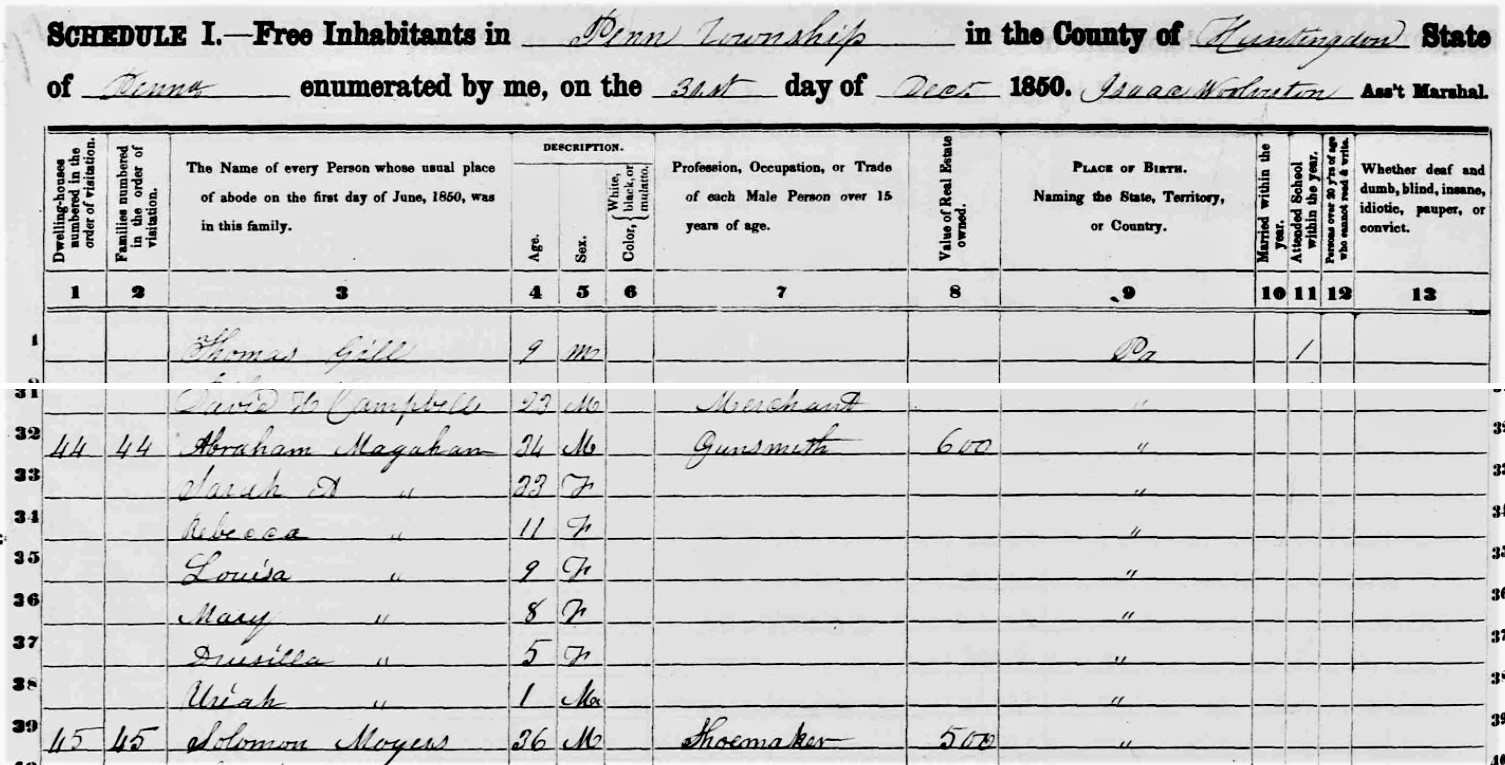 SCHEDULE I.—Free Inhabitants in Penn Township in the County of Huntingdon State
of Penna enumerated by me, on the 31st day of Dec. 1850. Isaac Wolverton Ass't Marshal.
Dwelling-houses numbered in the order of visitation.
Families numbered in the order of visitation.
The Name of every Person whose usual place of abode on the first day of June, 1850, was in this family.
DESCRIPTION.
Age.
Sex.
Color, { White, black, or mulatto.
Profession, Occupation, or Trade of each Male Person over 15 years of age.
Value of Real Estate owned.
PLACE OF BIRTH. Naming the State, Territory, or Country.
Married within the year.
Attended School within the year.
Persons over 20 y'rs of age who cannot read & write.
Whether deaf and dumb, blind, insane, idiotic, pauper, or convict.
1 2 3 4 5 6 7 8 9 10 11 12 13
1 Thomas Gill 9 M Pa 1
31 David H Campbell 23 M Merchant "
32 44 44 Abraham Magahan 34 M Gunsmith 600 "
33 Sarah A " 33 F "
34 Rebecca " 11 F "
35 Louisa " 9 F "
36 Mary " 8 F "
37 Drusilla " 5 F "
38 Uriah " 1 M "
39 45 45 Solomon Moyers 36 M Shoemaker 500 "